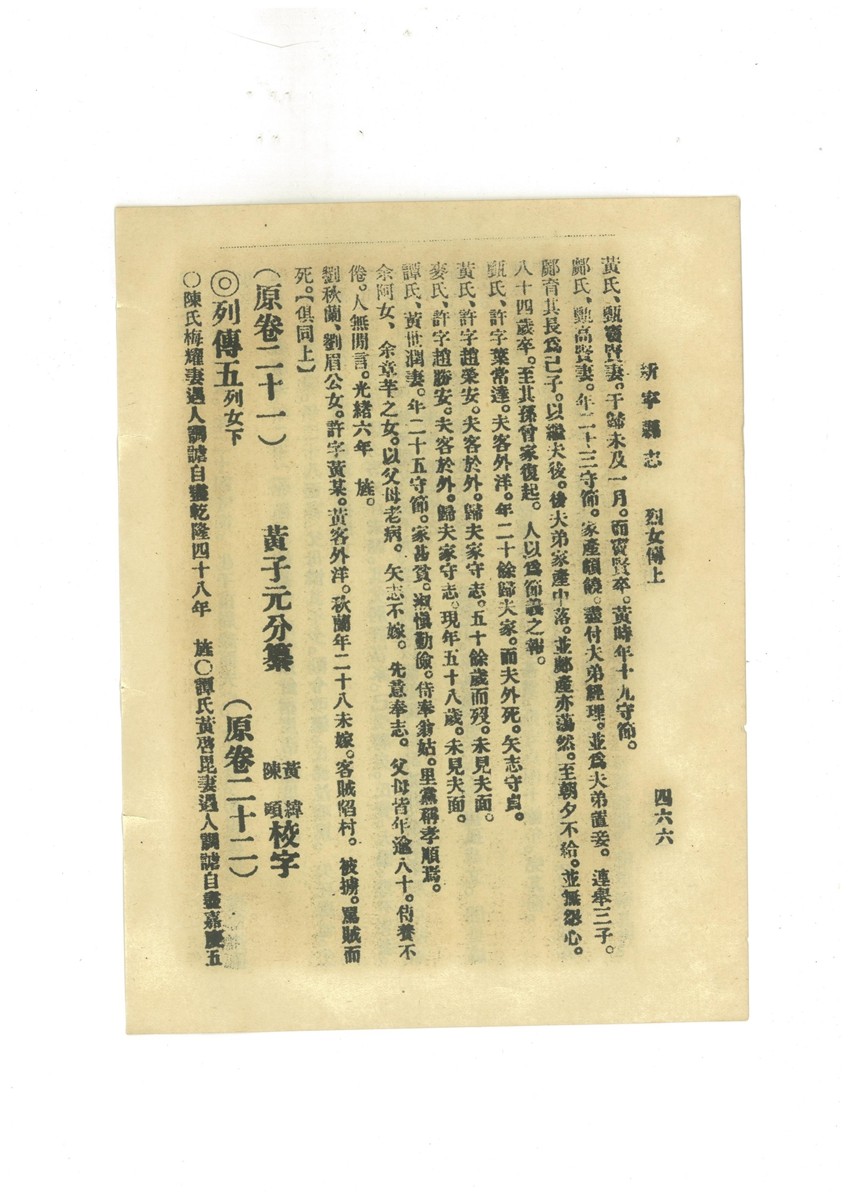 新寧縣志　烈女傳上　四六六
黃氏、甄寶賢妻。于歸未及一月。而寶賢卒。黃時年十九守節。
鄺氏、甄高賢妻。年二十三守節。家產頗饒。盡付夫弟經理。並為夫弟置妾。連舉三子。
鄺育其長為己子。以繼夫後。後夫弟家產中落。並鄺產亦蕩然。至朝夕不給。並無怨心。
八十四歲卒。至其孫曾家復起。人以為節義之報。
甄氏、許字葉常達。夫客外洋。年二十餘歸夫家。而夫外死。矢志守貞。
黃氏、許字趙榮安。夫客於外。歸夫家守志。五十餘歲而歿。未見夫面。
麥氏、許字趙勝安。夫客於外。歸夫家守志。現年五十八歲。未見夫面。
譚氏、黃世潤妻。年二十五守節。家甚貧。淑慎勤儉。侍奉翁姑。里黨稱孝順焉。
余阿女、余章芊之女。以父母老病。矢志不嫁。先意奉志。父母皆年逾八十。侍養不
倦。人無閒言。光緒六年　旌。
劉秋蘭、劉眉公女。許字黃某。黃客外洋。秋蘭年二十八未嫁。客賊陷村。被擄。罵賊而
死。【俱同上】
（原卷二十一）　黃子元分纂　黃緯 陳頤 校字
◎列傳五 列女下　（原卷二十二）
○陳氏梅耀妻遇人調謔自盡乾隆四十八年　旌○譚氏黃啓毘妻遇人調謔自盡嘉慶五